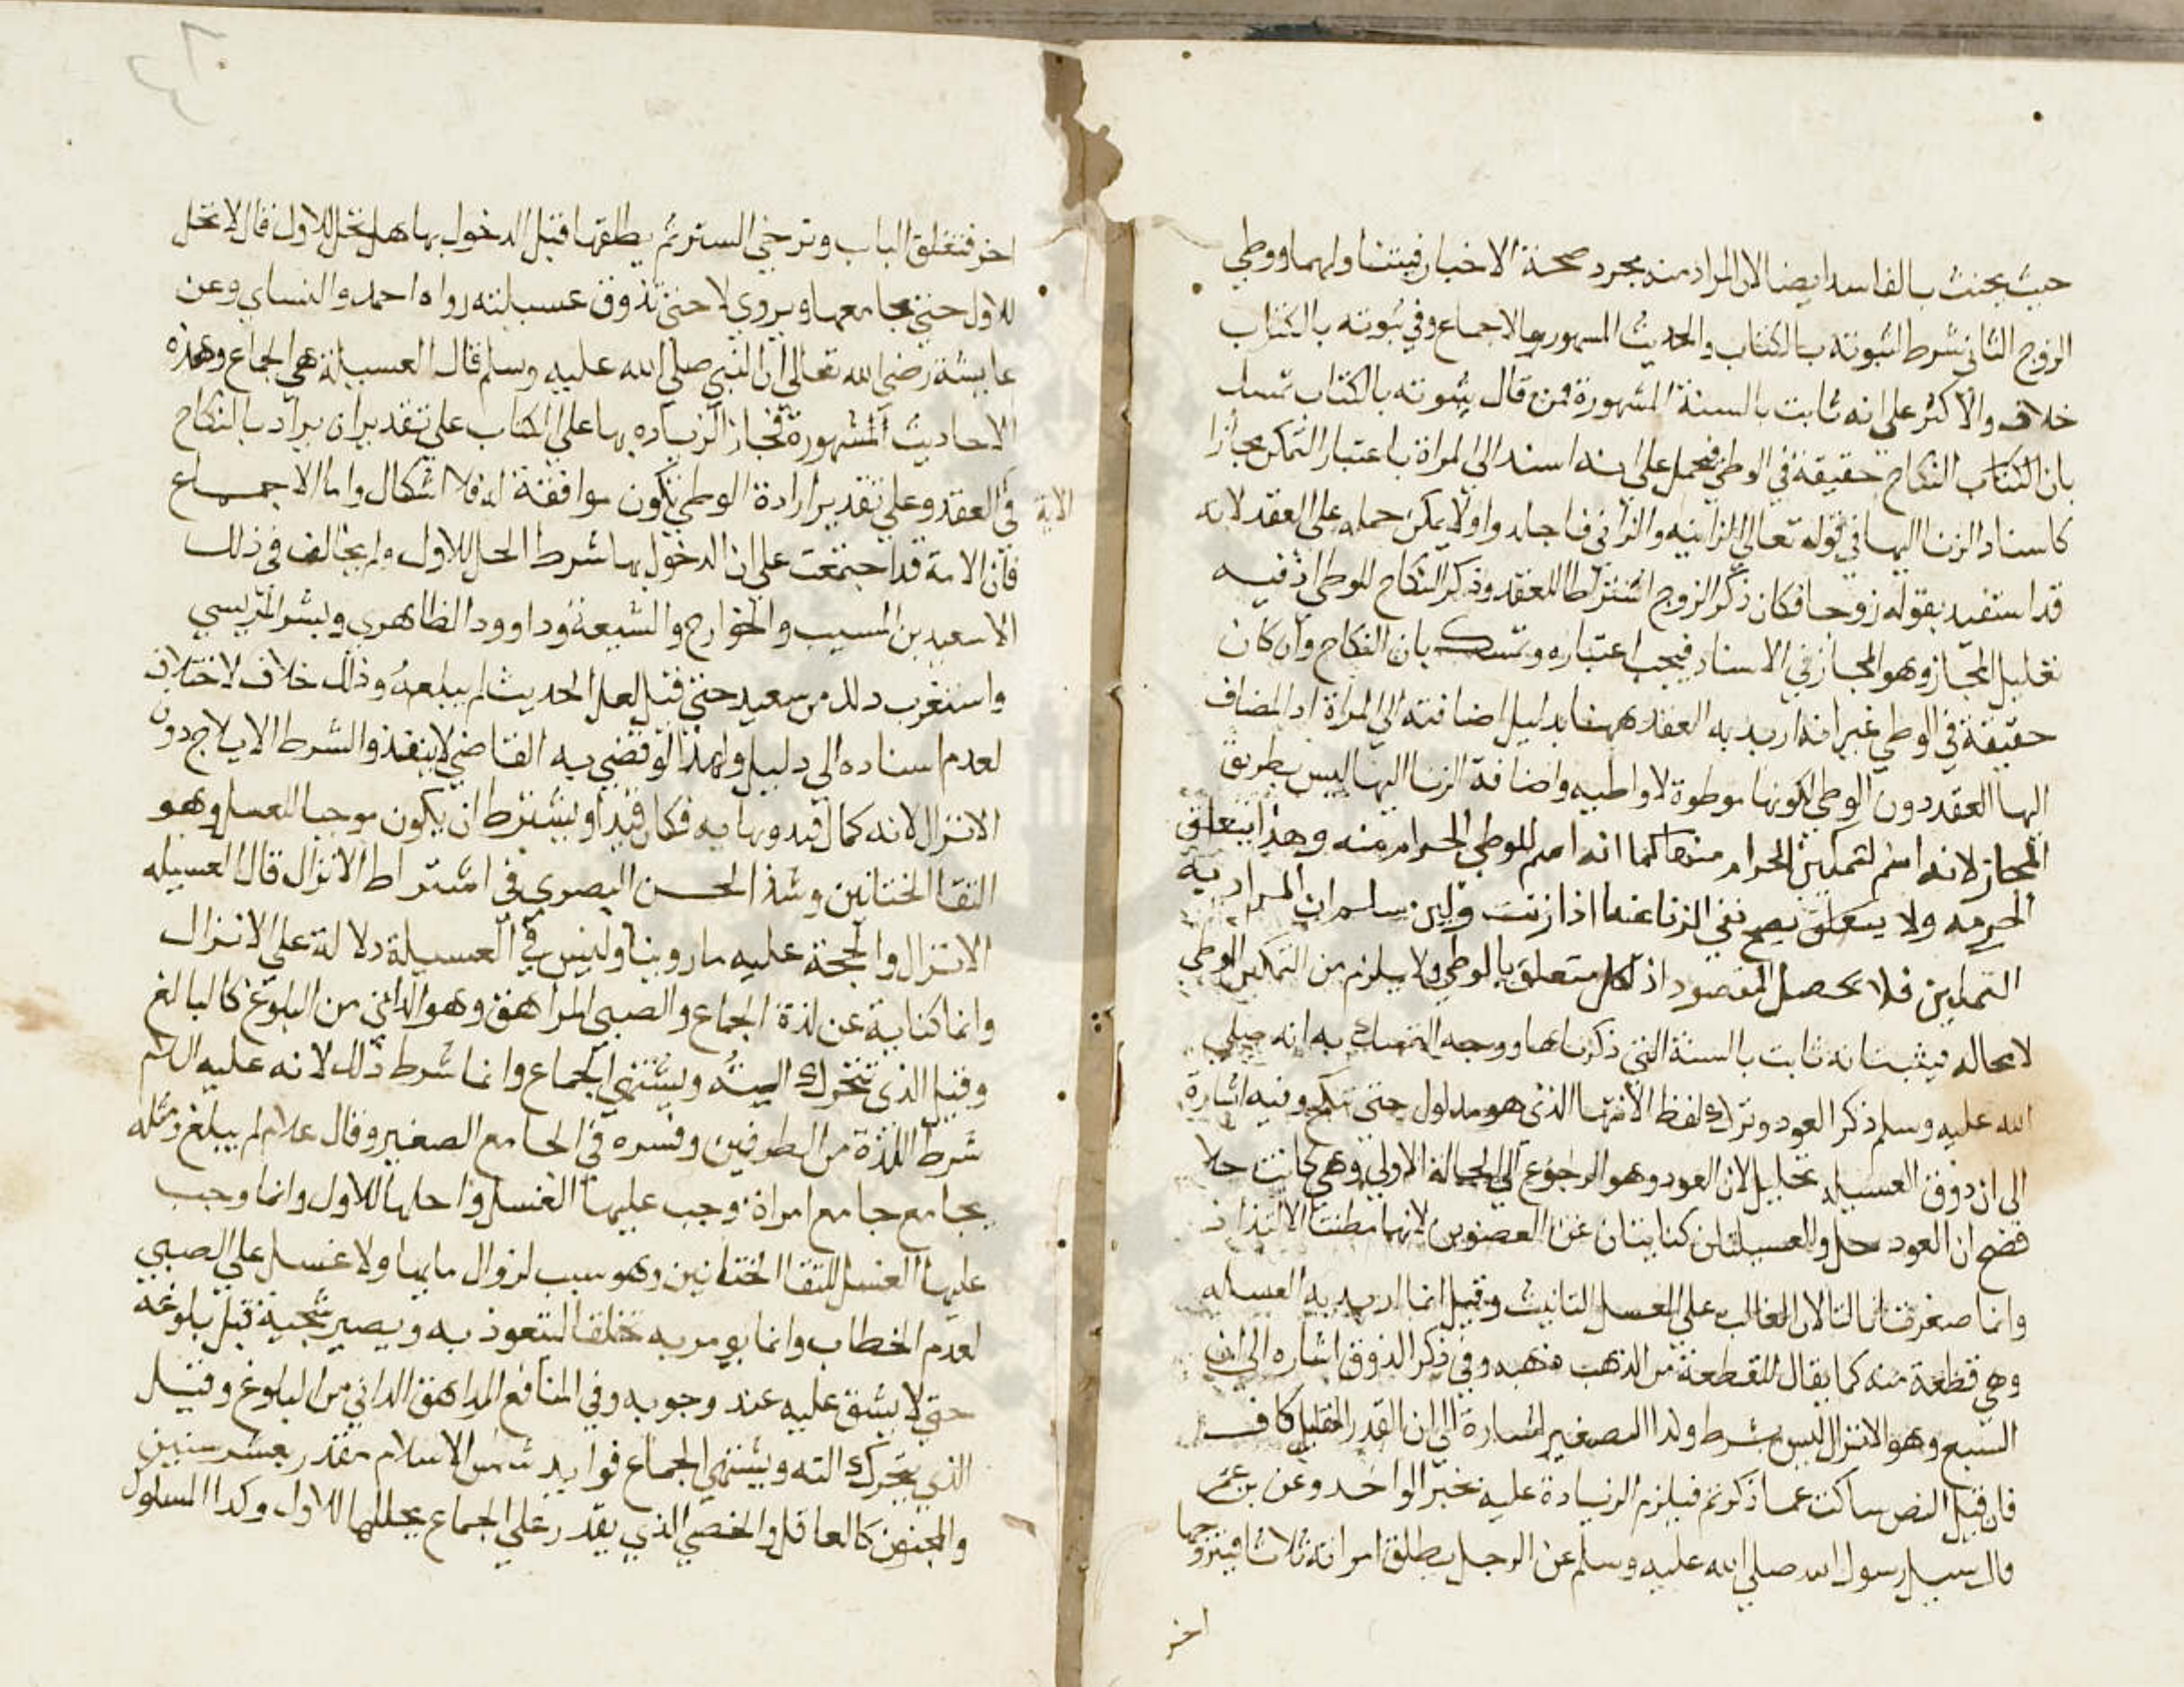 حيث يحنث بالفاسد ايضا لان المراد منه مجرد صحة الاخبار فيتناولهما ووطي
الزوج الثاني شرط لثبوته بالكتاب والحديث المشهور والاجماع وفي ثبوته بالكتاب
خلاف والاكثر على انه ثابت بالسنة المشهورة فمن قال بثبوته بالكتاب تمسك
بان الكتاب النكاح حقيقة في الوطي فيحمل على انه اسند الى المراة باعتبار التمكن مجازا
كاسناد الزنا اليها في قوله تعالى الزانيه والزاني فاجلدوا ولا يمكن حمله على العقد لانه
قد استفيد بقوله زوجا فكان ذكر الزوج اشتراطا للعقد وذكر النكاح للوطي اذ فيه
تقليل المجاز وهو المجاز في الاسناد فيجب اعتباره وتمسك بان النكاح وان كان
حقيقة في الوطي غير انه اريد به العقد ههنا بدليل اضافته الى المراة اد المضاف
اليها العقد دون الوطي لكونها موطوة لا واطيه واضافة الزنا اليها ليس بطريق
المجاز لانه اسم لتمكين الحرام منها كما انه اسم للوطي الحرام منه وهذا يتعلق
الحرمه ولا يتعلق يصح نفي الزنا عنها اذا زنت ولين سلم ان المراد به
التمكين فلا يحصل المقصود اذ الحل متعلق بالوطي ولا يلزم من التمكين الوطي
لا محاله فيثبت انه ثابت بالسنة التي ذكرناها ووجه التمسك به انه صلى
الله عليه وسلم ذكر العود وترك لفظ الانتها الذي هو مدلول حتى تنكح وفيه اشارة
الى ان ذوق العسيله تحليل لان العود وهو الرجوع الى الحالة الاولى وهي كانت حلا
فصح ان العود حل والعسيلتان كنايتان عن العضوين لانهما مظنتا الالتذاذ
وانما صغرتا بالتا لان الغالب على العسل التانيث وقيل انما اريد به العسله
وهي قطعة منه كما يقال للقطعة من الذهب ذهبه وفي ذكر الذوق اشاره الى ان
الشبع وهو الانزال ليس بشرط ولذا الصغير اشارة الى ان القدر القليل كاف
فان قيل النص ساكت عما ذكرتم فيلزم الزيادة عليه بخبر الواحد وعن بن عمر
قال سيل رسول الله صلى الله عليه وسلم عن الرجل يطلق امراته ثلاثا فيتزوجها
اخر
اخر فتغلق الباب وترخي الستر ثم يطلقها قبل الدخول بها هل تحل للاول قال لا تحل
للاول حتى يجامعها ويروي لا حتى تذوق عسيلته رواه احمد والنساي وعن
عايشة رضي الله تعالى ان النبي صلى الله عليه وسلم قال العسيلة هي الجماع وهذه
الاحاديث المشهورة فجاز الزياده بها على الكتاب على تقدير ان يراد بالنكاح
الاية
في العقد وعلى تقدير ارادة الوطي تكون موافقة له فلا اشكال واما الاجماع
فان الامة قد اجتمعت على ان الدخول بها شرط الحل للاول ولم يخالف في ذلك
الا سعيد بن المسيب والخوارج والشيعة وداوود الظاهري وبشر المريسي
واستغرب دلك من سعيد حتى قيل لعل الحديث لم يبلغه وذلك خلاف لا اختلاف
لعدم اسناده الى دليل ولهذا لو قضى به القاضي لا ينفذ والشرط الايلاج دون
الانزال لانه كمال فيه ونهايه فكان قيدا ويشترط ان يكون موجبا للغسل وهو
التقا الختانين وشذ الحسن البصري في اشتراط الانزال قال العسيله
الانزال والحجة عليه ما روينا وليس في العسيلة دلالة على الانزال
وانما كناية عن لذة الجماع والصبي المراهق وهو الداني من البلوغ كالبالغ
وقيل الذي تتحرك اليته ويشتهي الجماع وانما شرط ذلك لانه عليه السلم
شرط اللذة من الطرفين وفسره في الجامع الصغير وقال غلام لم يبلغ ومثله
يجامع جامع امراة وجب عليها الغسل واحلها للاول وانما وجب
عليها الغسل للتقا الختانين وهو سبب لنزوال مايها ولا غسل على الصبي
لعدم الخطاب وانما يومر به تخلقا ليتعوذ به ويصير سجية قبل بلوغه
حتى لا يشق عليه عند وجوبه وفي المنافع المراهق الداني من البلوغ وقيل
الذي يتحرك الته ويشتهي الجماع فوايد شمس الاسلام مقدر بعشر سنين
والمجنون كالعاقل والخصي الذي يقدر على الجماع يحللها للاول وكدا المسلول